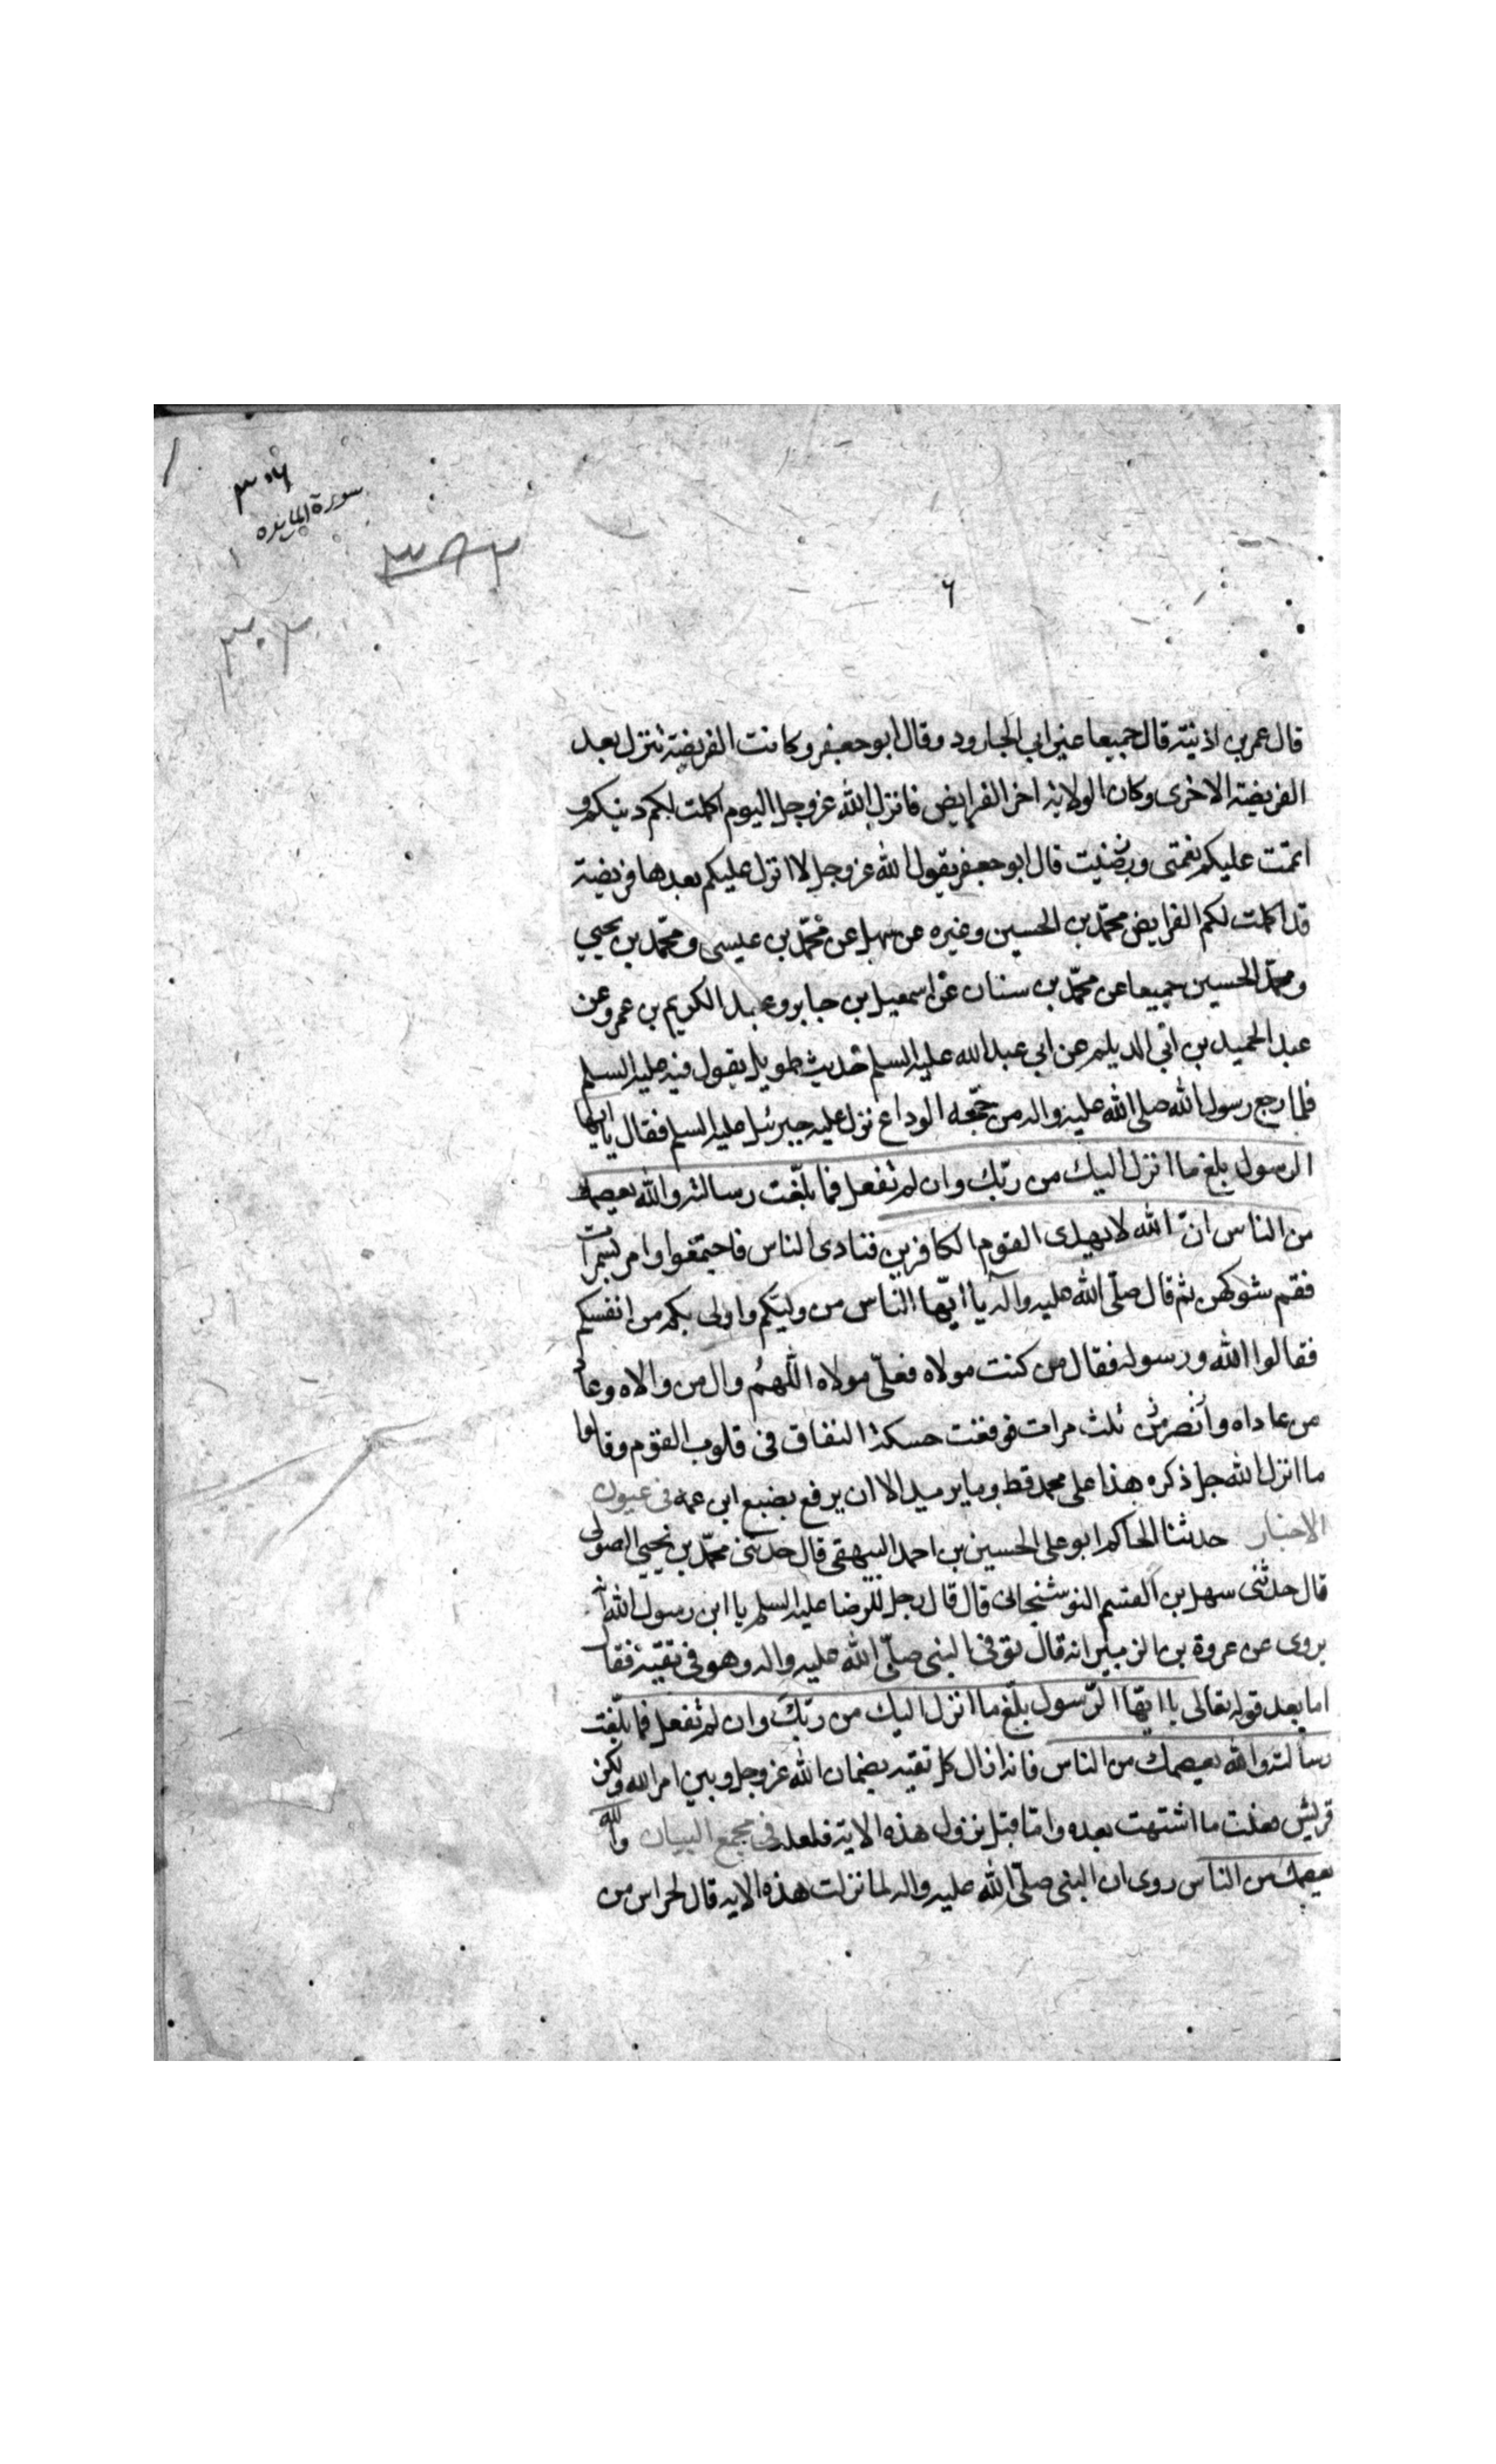 ٣٠٦
سورة المايده
٣٠٢
٦
قال عمر بن اذينة قال جميعا غير ابي الجارود وقال ابو جعفر وكانت الفريضة تنزل بعد
الفريضة الاخرى وكان الولاية اخر الفرايض فانزل الله عز وجل اليوم اكملت لكم دينكم و
اتممت عليكم نعمتى ورضيت قال ابو جعفر يقول الله عز وجل لا انزل عليكم بعدها فريضة
قد اكملت لكم الفرايض محمّد بن الحسين وغيره عن سهل عن محمّد بن عيسى ومحمّد بن يحيي
ومحمّد الحسين جميعا عن محمّد بن سنان عن اسمعيل بن جابر وعبد الكريم بن عمرو عن
عبد الحميد بن ابي الديلم عن ابي عبد الله عليه السلم حديث طويل يقول فيه عليه السلم
فلما رجع رسول الله صلى الله عليه واله من حجّه الوداع نزل عليه جبرئيل عليه السلم فقال يا ايها
الرسول بلغ ما انزل اليك من ربّك وان لم تفعل فما بلّغت رسالته والله يعصمك
من الناس انّ الله لا يهدى القوم الكافرين فنادى الناس فاجتمعوا وامر بسمرات
فقم شوكهن ثم قال صلّى الله عليه واله يا ايّها النّاس من وليّكم واولى بكم من انفسكم
فقالوا الله ورسوله فقال من كنت مولاه فعلىّ مولاه اللّهمُ وال من والاه وعاد
من عاداه وانصر من ثلث مرات فوقعت حسكة النفاق فى قلوب القوم وقالوا
ما انزل الله جل ذكره هذا على محمد قط وما يريد الا ان يرفع بضبع ابن عمه فى عيون
الاخبار حدثنا الحاكم ابو على الحسين بن احمد البيهقى قال حدثنى محمّد بن يحيي الصولى
قال حدثنى سهل بن القسم النوشنجانى قال قال رجل للرضا عليه السلم يا ابن رسول الله انه
يروى عن عروة بن الزبير انه قال توفى النبى صلّى الله عليه واله وهو فى تقيّة فقال
اما بعد قوله تعالى يا ايّها الرّسول بلّغ ما انزل اليك من ربّكَ وان لم تفعل فما بلّغت
رسالته والله يعصمك من الناس فانه ازال كل تقيه بضمان الله عز وجل وبين امر الله ولكن
قريش فعلت ما اشتهت بعده واما قبل نزول هذه الاية فلعله فى مجمع البيان والله
يعصمك من الناس روى ان النبى صلّى الله عليه واله لما نزلت هذه الايه قال لحراس من